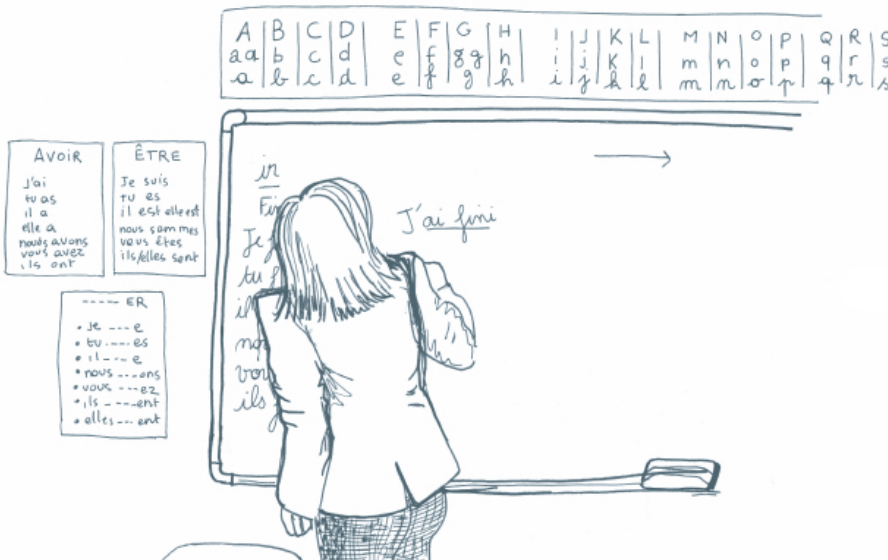 A B C D E F G H I J K L M N O P Q R S
a a b c d e f g g h i j k l m n o p q r s
a b c d e f g h i j k l m n o p q r s
AVOIR
J'ai
tu as
il a
elle a
nous avons
vous avez
ils ont
ÊTRE
Je suis
tu es
il est elle est
nous sommes
vous êtes
ils/elles sont
----- ER
• Je --- e
• tu ---- es
• il --- e
• nous --- ons
• vous --- ez
• ils ---- ent
• elles --- ent
ir
Je
tu
il
ils
J'ai fini